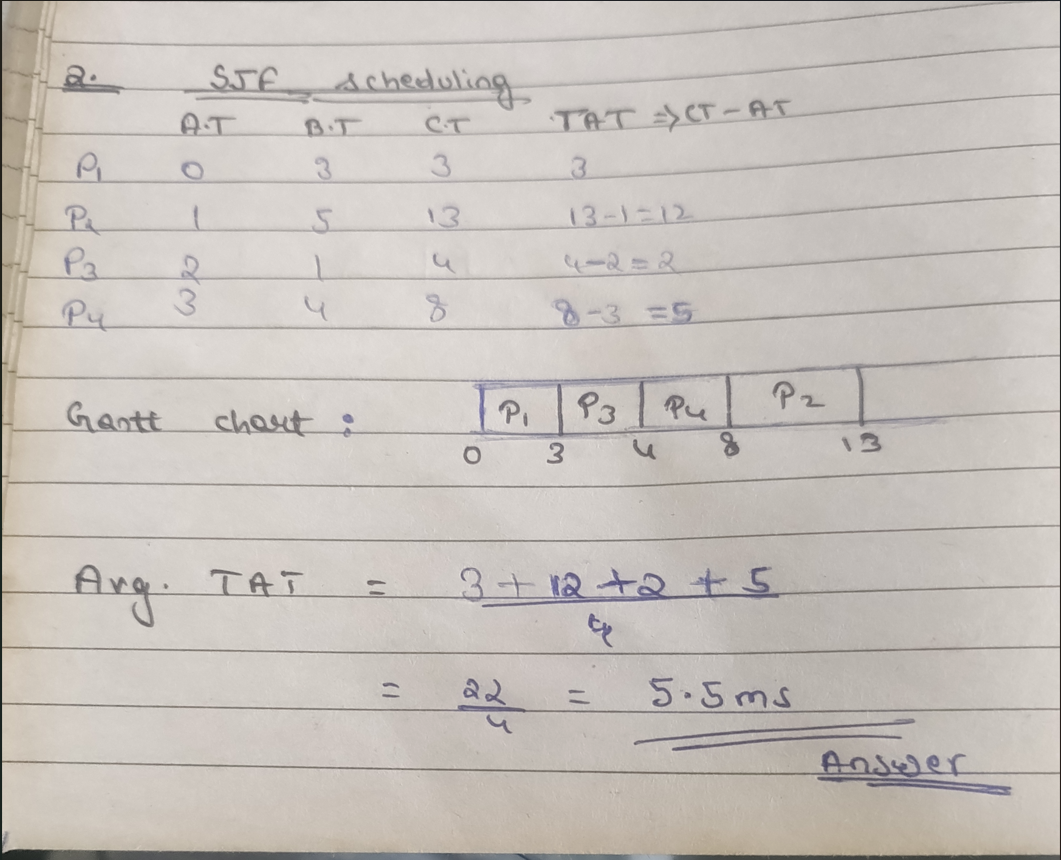 2. SJF scheduling
A.T B.T C.T TAT => CT - AT
P1 0 3 3 3
P2 1 5 13 13-1=12
P3 2 1 4 4-2=2
P4 3 4 8 8-3 =5
Gantt chart : P1 P3 P4 P2
0 3 4 8 13
Avg. TAT = 3 + 12 + 2 + 5
4
= 22 = 5.5 ms
4
Answer